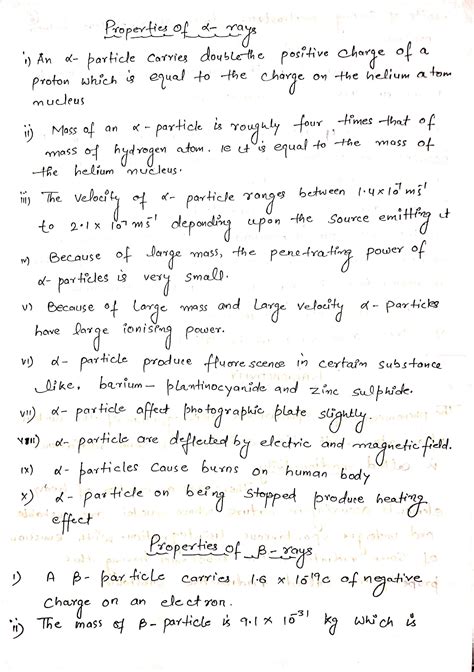 Properties of α- rays
i) An α- particle carries double the positive charge of a
proton which is equal to the charge on the helium atom
nucleus
ii) Mass of an α- particle is roughly four times that of
mass of hydrogen atom. ie it is equal to the mass of
the helium nucleus.
iii) The velocity of α- particle ranges between 1.4×10⁷ ms⁻¹
to 2.1 × 10⁷ ms⁻¹ depending upon the source emitting it
iv) Because of large mass, the penetrating power of
α- particles is very small.
v) Because of Large mass and Large velocity α- particles
have large ionising power.
vi) α- particle produce fluorescence in certain substance
like, barium- plantinocyanide and zinc sulphide.
vii) α- particle affect photographic plate slightly.
viii) α- particle are deflected by electric and magnetic field.
ix) α- particles cause burns on human body
x) α- particle on being stopped produce heating
effect
Properties of β- rays
i) A β- particle carries 1.6 × 10⁻¹⁹c of negative
charge on an electron.
ii) The mass of β- particle is 9.1 × 10⁻³¹ kg which is